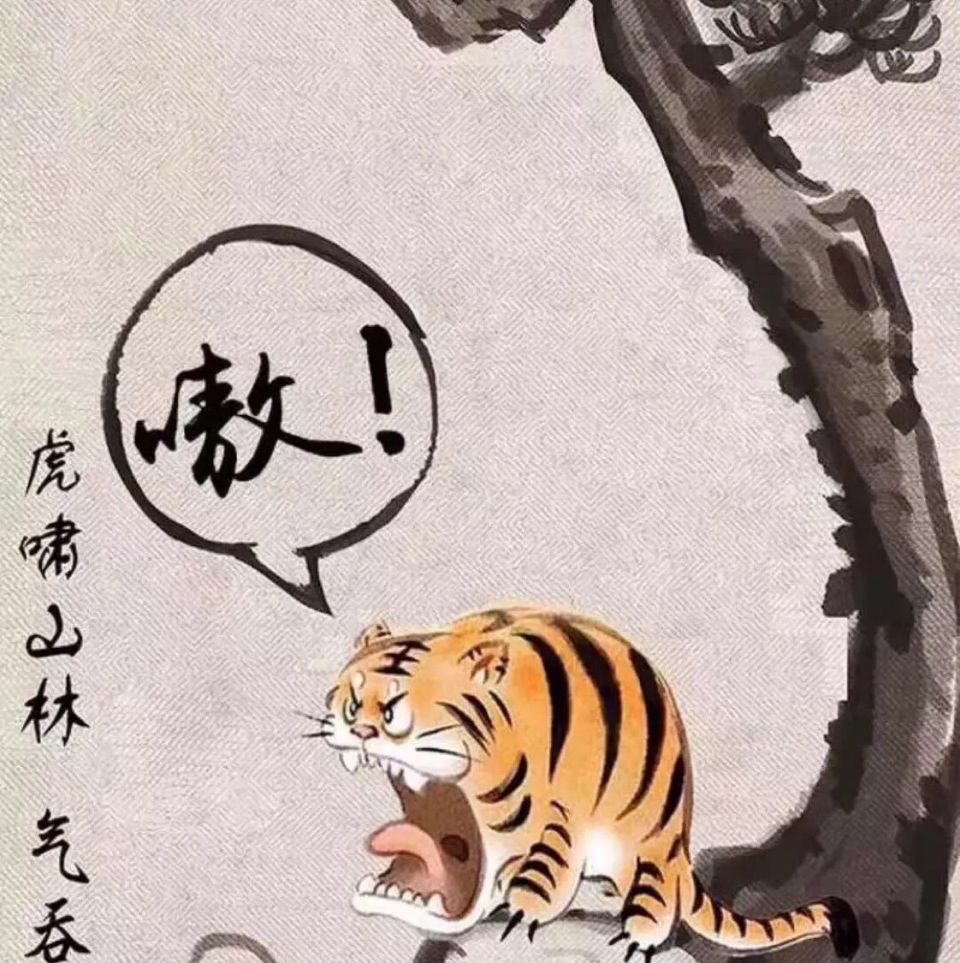 嗷！
虎啸山林 气吞